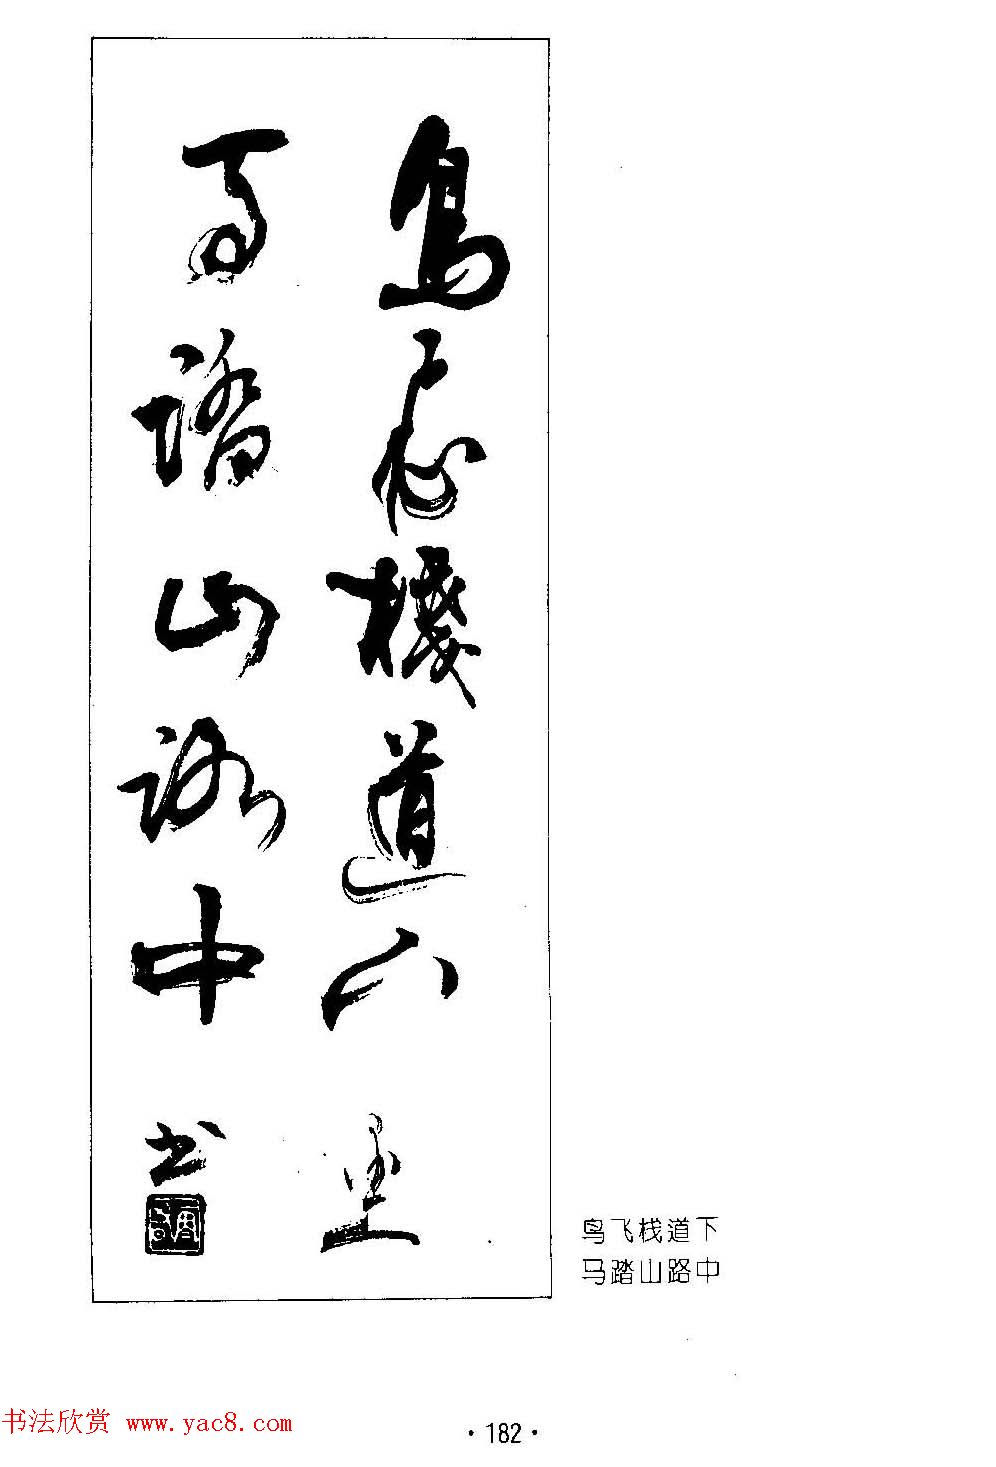 鳥飛棧道下
馬踏山路中
书
鸟飞栈道下
马踏山路中
书法欣赏 www.yac8.com
·182·